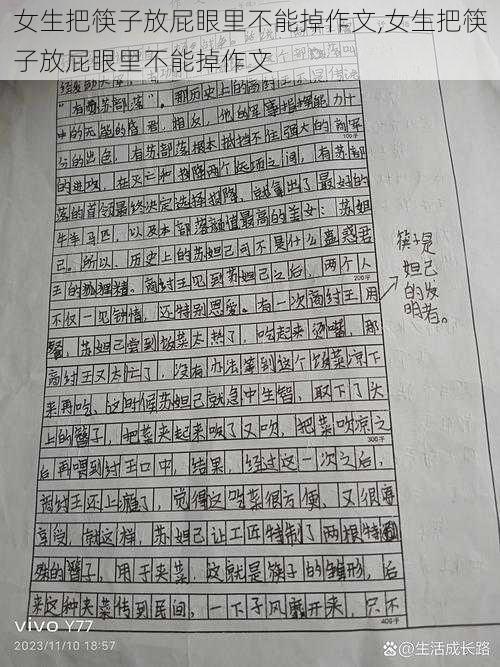 女生把筷子放屁眼里不能掉作文,女生把筷
子放屁眼里不能掉作文
"有苏部落"。那历史上的商纣王还是传说
中的无能的昏君,相反,他的军事指挥能力十
分的出色,有苏部落根本抵挡不住强大的商军
100字
的进攻,在灭亡和投降两个选项之间,有苏部
落的首领最终决定选择投降,就拿出了最好的
牛羊马匹,以及本部落颜值最高的美女:苏妲
己。所以,历史上的苏妲己可不是什么蛊惑君
王的狐狸精。商纣王见到苏妲己之后,两个人
200字
不仅一见钟情,还特别恩爱。有一次商纣王用
餐,苏妲己尝到饭菜太热了,吃起来烫嘴,那
商纣王又太忙了,没有办法等到这个饭菜凉下
来再吃,这时候苏妲己就急中生智,取下了头
上的簪子,把菜夹起来吸了又吹,把菜吹凉之
300字
后再喂到纣王口中,结果,经过这一次之后,
商纣王还上瘾了,觉得这吃菜很方便,又很享
享受,就这样,苏妲己让工匠特制了两根特
殊的簪子,用于夹菜,这就是筷子的雏形,后
来这种夹菜传到民间,一下子风靡开来,只不
400字
筷子是
妲己
的发
明者。
vivo Y77
2023/11/10 18:57
@生活成长路